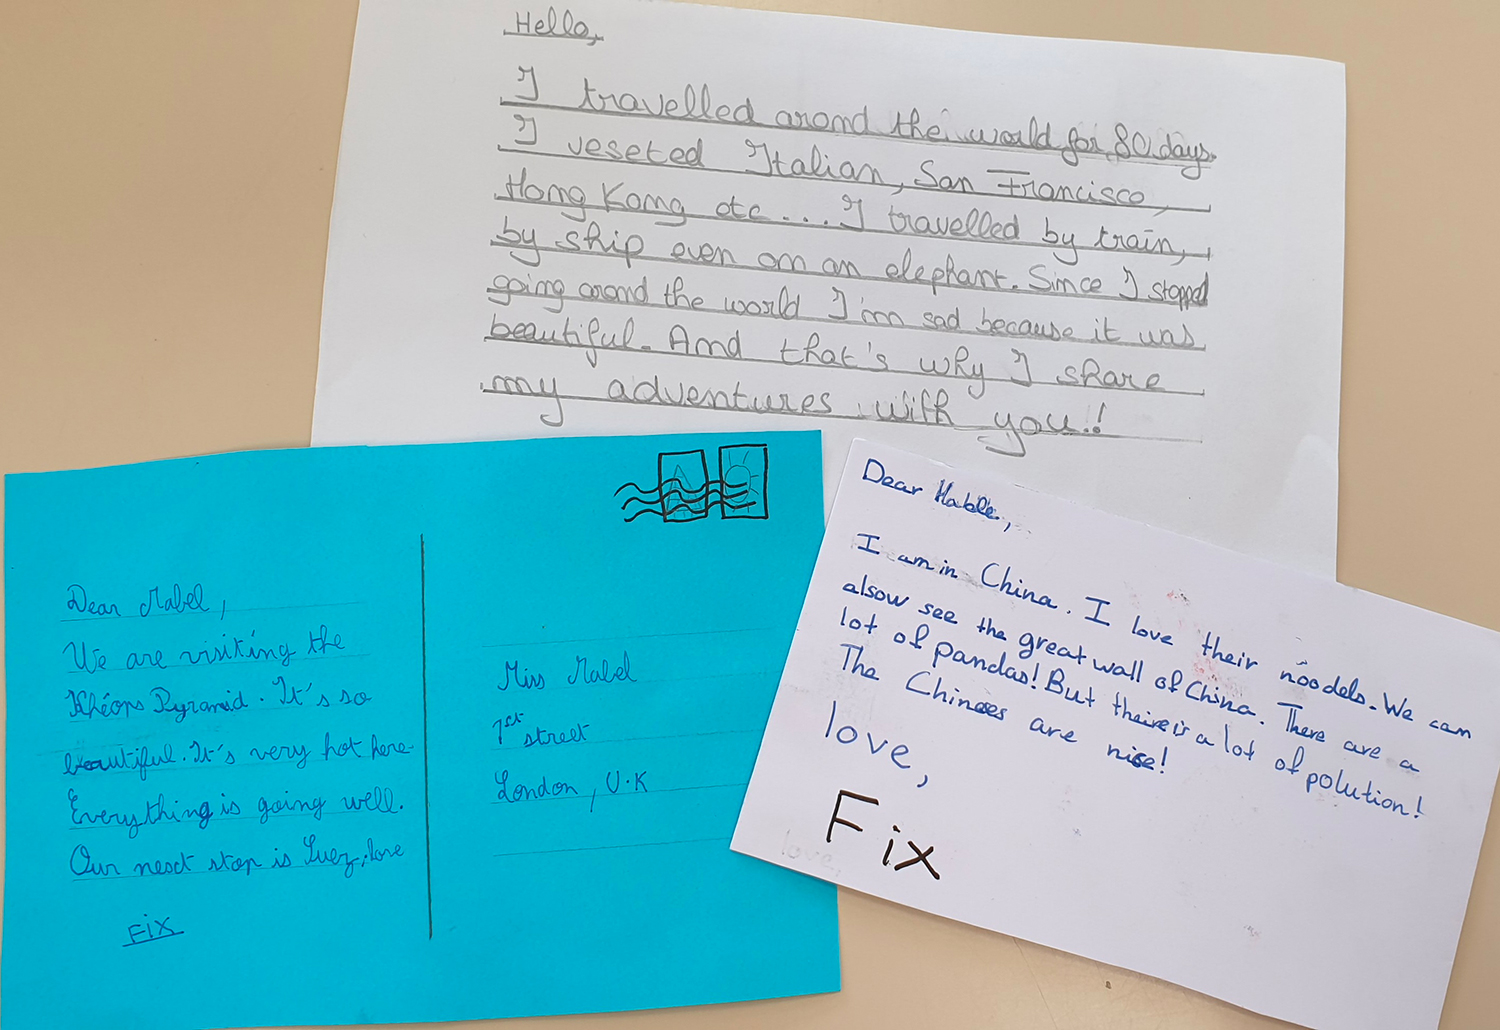 Hello,
I travelled arond the world for 80 days.
I veseted Italian, San Francisco,
Hong Kong etc .... I travelled by train,
by ship even on an elephant. Since I stopped
going arond the world I'm sad because it was
beautiful. And that's why I share
my adventures with you!!
Dear Mabel,
We are visiting the
Khéops Pyramid. It's so
beautiful. It's very hot here.
Everything is going well.
Our next stop is Suez, love
FIX
Miss Mabel
1st street
London, U.K
Dear Mable,
I am in China. I love their noodels. We can
alsow see the great wall of China. There are a
lot of pandas! But theire is a lot of polution!
The Chinees are nice!
love,
Fix
love,